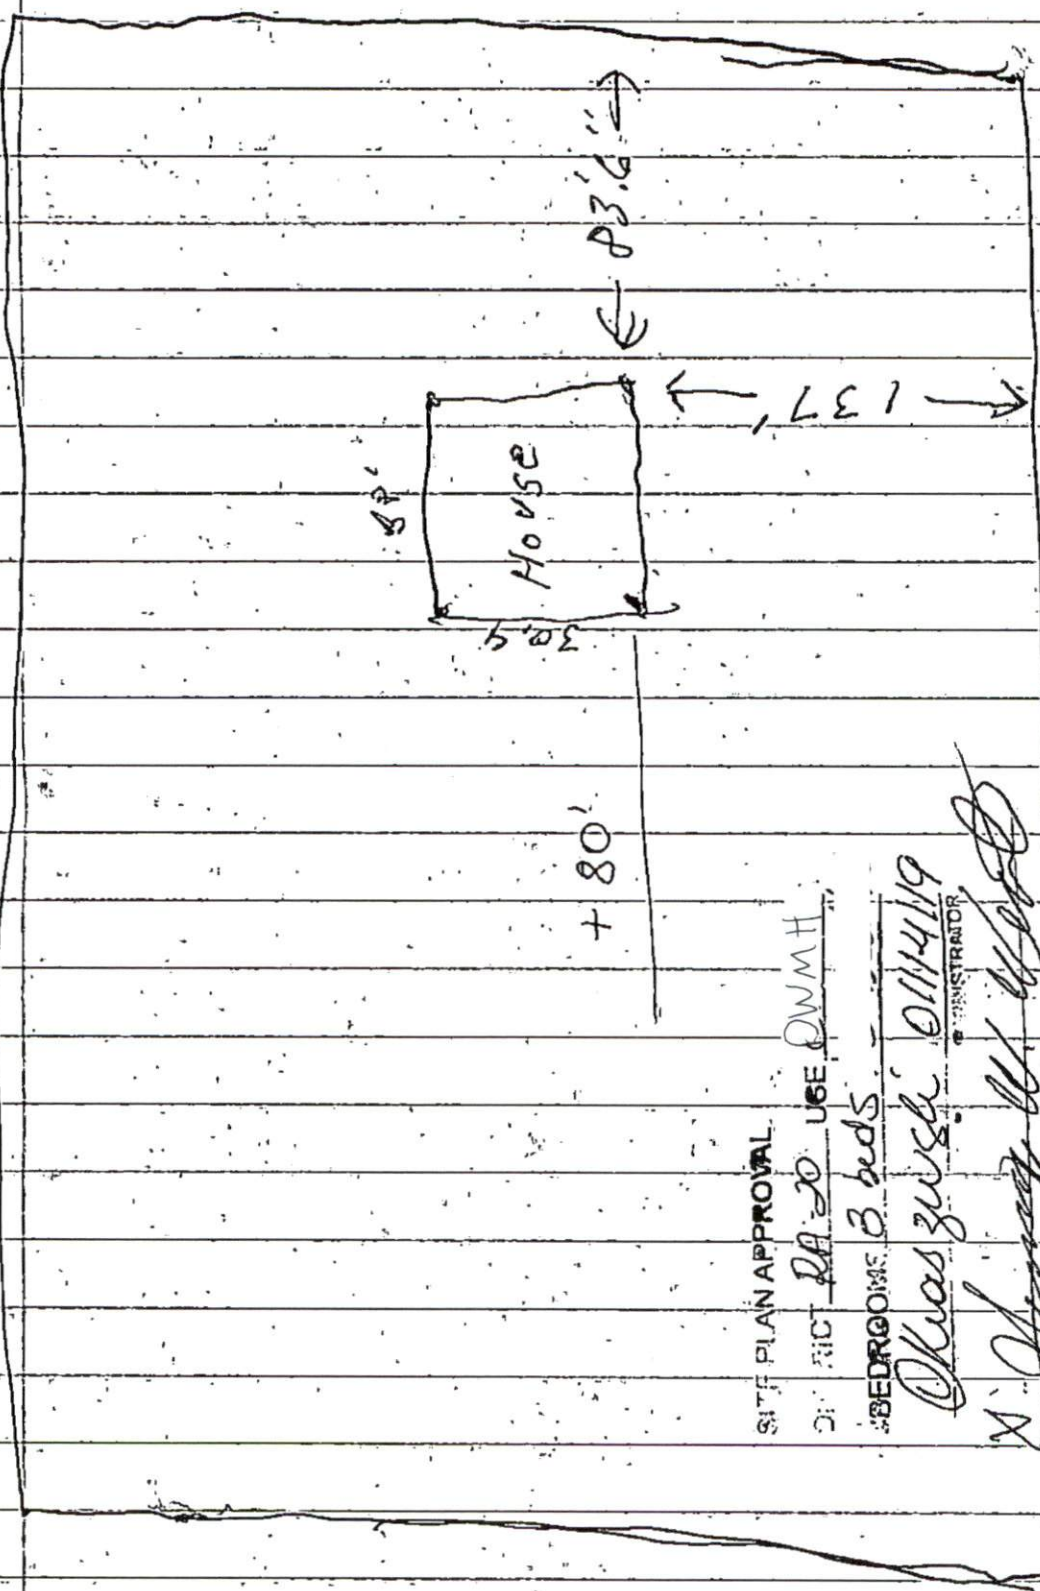 83'6"
137'
House
30.4
+ 80'
SITE PLAN APPROVAL
DISTRICT RA-20 USE DWMH
BEDROOMS 3 beds
01/14/19
ADMINISTRATOR
X